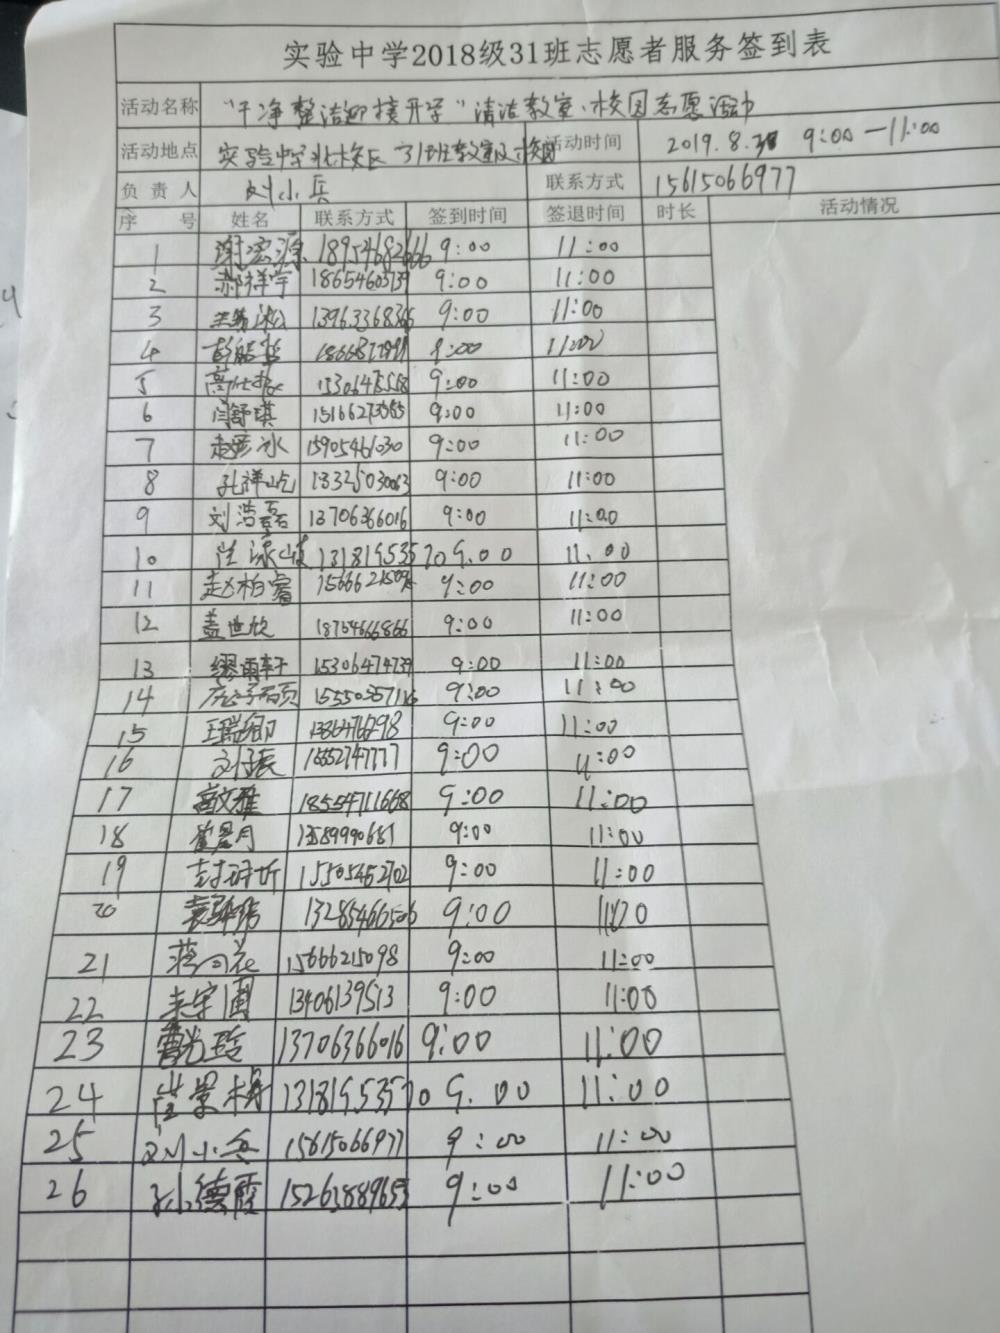 实验中学2018级31班志愿者服务签到表
活动名称 "干净整洁迎接开学"清洁教室、校园志愿活动
活动地点 实验中学北校区31班教室及校园 活动时间 2019.8. 9:00—11:00
负责人 刘小兵 联系方式 15615066977
序号 姓名 联系方式 签到时间 签退时间 时长 活动情况
1 谢宏源 18954682666 9:00 11:00
2 郝祥宇 18654603739 9:00 11:00
3 13963368366 9:00 11:00
4 9:00 11:00
5 15306478558 9:00 11:00
6 闫舒琪 15166273565 9:00 11:00
7 赵彦冰 15905461030 9:00 11:00
8 孔祥屹 13325030063 9:00 11:00
9 刘浩磊 13706366016 9:00 11:00
10 13181953570 9:00 11:00
11 赵柏睿 15666215098 9:00 11:00
12 盖世欣 18754666866 9:00 11:00
13 缪雨轩 15306474739 9:00 11:00
14 15550357116 9:00 11:00
15 9:00 11:00
16 刘付震 9:00 11:00
17 高文雅 18554711668 9:00 11:00
18 崔景月 13589990681 9:00 11:00
19 15505452702 9:00 11:00
20 13285466506 9:00
21 15666215098 9:00 11:00
22 13406139513 9:00 11:00
23 曹光玲 13706366016 9:00 11:00
24 崔景梅 13181953570 9:00 11:00
25 刘小兵 15615066977 9:00 11:00
26 孙德霞 15263889653 9:00 11:00